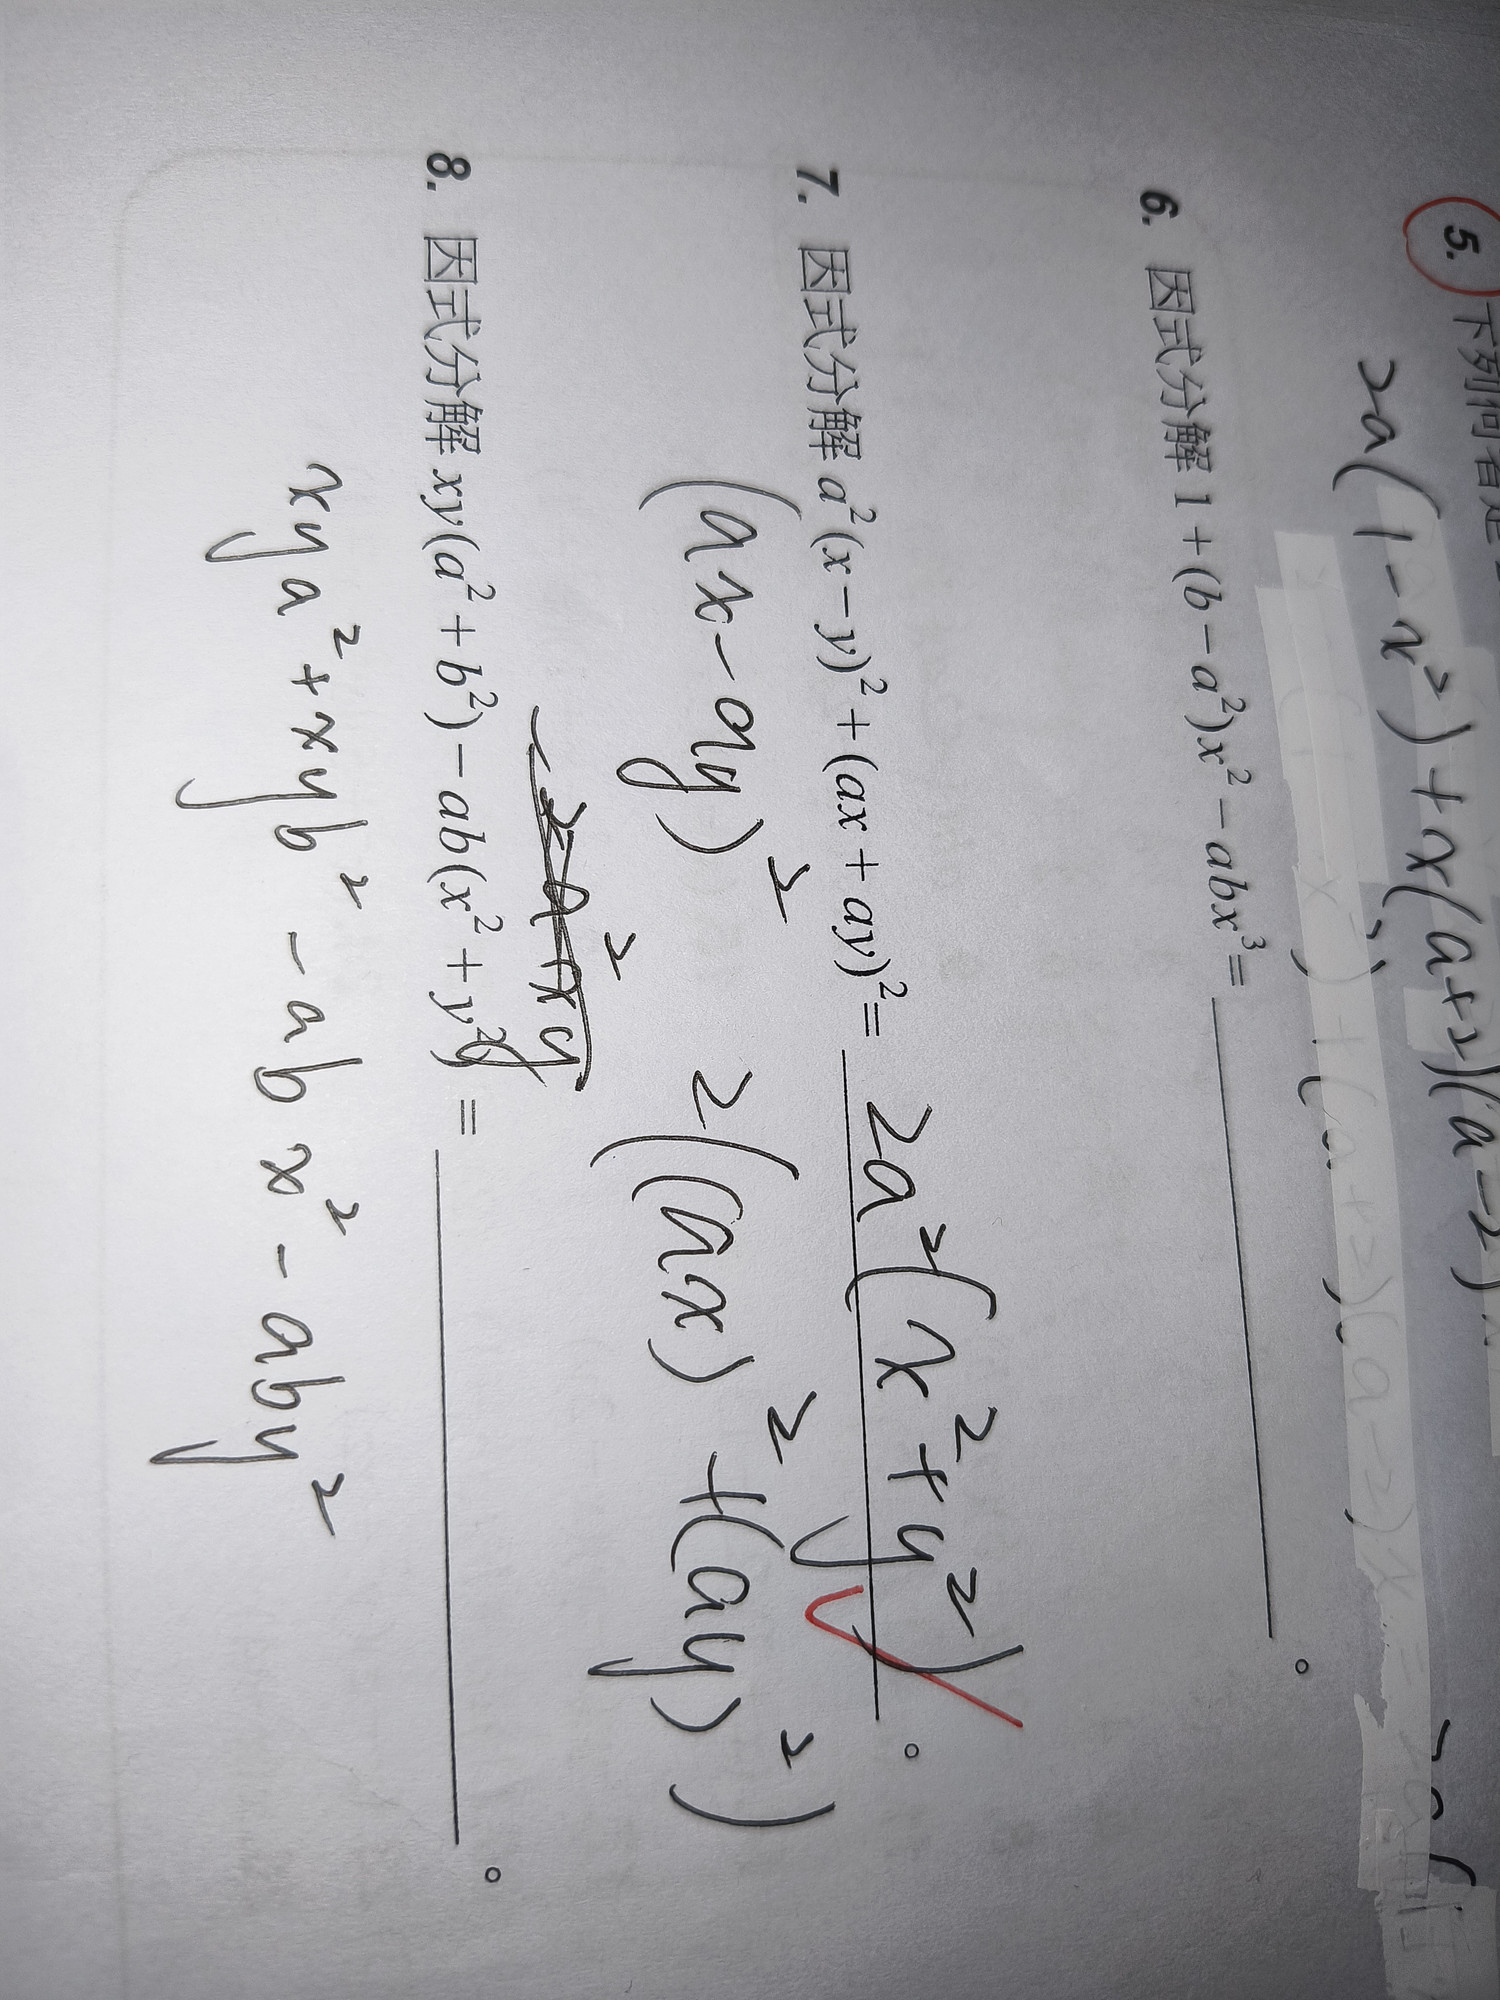 5. 下列何者是
2a(1-x²)+x(a+2)(a-2)
6. 因式分解 1+(b-a²)x²-abx³= 。
7. 因式分解 a²(x-y)²+(ax+ay)²= 2a²(x²+y²) 。
(ax-ay)² 2((ax)²+(ay)²)
8. 因式分解 xy(a²+b²)-ab(x²+y²) = 。
xya²+xyb²-abx²-aby²